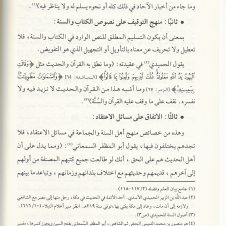 وما جاء من أخبار الآحاد في ذلك كله أو نحوه يسلم له ولا يناظر فيه(١).
* ثانيًا: منهج التوقيف على نصوص الكتاب والسنة:
بمعنى أن يكون التسليم المطلق للنص الوارد في الكتاب والسنة، فلا
تعطيل ولا تحريف عن معناه بالتأويل أو التجهيل الذي هو التفويض.
يقول الحميدي(٢) في عقيدته: (وما نطق به القرآن والحديث مثل ﴿وَقَالَتِ
الْيَهُودُ يَدُ اللَّهِ مَغْلُولَةٌ غُلَّتْ أَيْدِيهِمْ وَلُعِنُوا بِمَا قَالُوا﴾ [المائدة: ٦٤] ﴿وَالسَّمَاوَاتُ مَطْوِيَّاتٌ
بِيَمِينِهِ﴾ [الزمر: ٦٧] وما أشبه هذا من القرآن والحديث لا نزيد فيه ولا
نفسره، نقف على ما وقف عليه القرآن والسُّنَّة)(٣).
* ثالثًا: الاتفاق على مسائل الاعتقاد:
وهذه من خصائص منهج أهل السنة والجماعة في مسائل الاعتقاد، فلا
تجدهم يختلفون فيها، يقول أبو المظفر السمعاني(٤): (ومما يدل على أن
أهل الحديث هم على الحق، أنك لو طالعت جميع كتبهم المصنفة من أولهم
إلى آخرهم، قديمهم وحديثهم مع اختلاف بلدانهم وزمانهم، وتباعد ما بينهم
(١) جامع بيان العلم وفضله (١١٧/٢-١١٨).
(٣) أصول السنة للحميدي (ص٤٢).